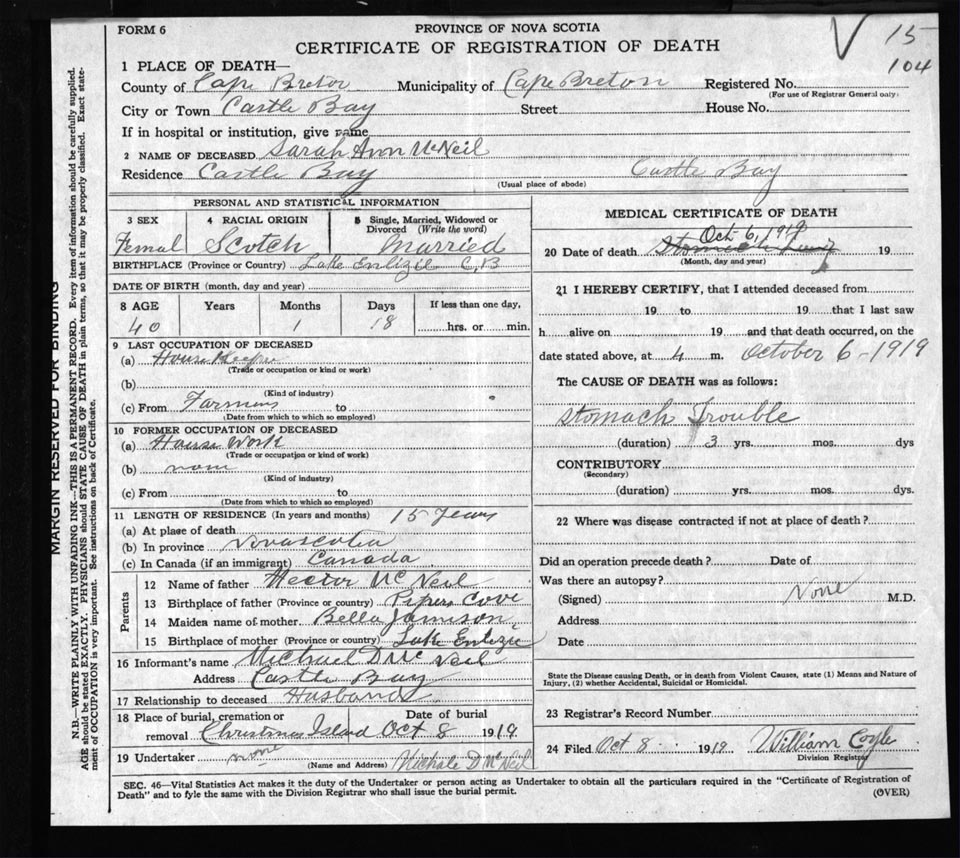 FORM 6
PROVINCE OF NOVA SCOTIA
CERTIFICATE OF REGISTRATION OF DEATH
15
104
1 PLACE OF DEATH—
County of Cape Breton Municipality of Cape Breton Registered No.
(For use of Registrar General only)
City or Town Castle Bay Street House No.
If in hospital or institution, give name
2 NAME OF DECEASED Sarah Ann McNeil
Residence Castle Bay Castle Bay
(Usual place of abode)
PERSONAL AND STATISTICAL INFORMATION
3 SEX 4 RACIAL ORIGIN 5 Single, Married, Widowed or Divorced (Write the word)
Femal Scotch Married
BIRTHPLACE (Province or Country) Lake C,B
DATE OF BIRTH (month, day and year)
8 AGE Years Months Days If less than one day,
40 1 18 hrs. or min.
9 LAST OCCUPATION OF DECEASED
(a) House Keeper
(Trade or occupation or kind or work)
(b)
(Kind of industry)
(c) From Farming to
(Date from which to which so employed)
10 FORMER OCCUPATION OF DECEASED
(a) House Work
(Trade or occupation or kind of work)
(b) none
(Kind of industry)
(c) From to
(Date from which to which so employed)
11 LENGTH OF RESIDENCE (In years and months) 15 Years
(a) At place of death
(b) In province Novascotia
(c) In Canada (if an immigrant) Canada
Parents
12 Name of father Hector McNeil
13 Birthplace of father (Province or country) Pipers Cove
14 Maiden name of mother Bella Jamison
15 Birthplace of mother (Province or country) Lake
16 Informant's name Michael D McNeil
Address Castle Bay
17 Relationship to deceased Husband
18 Place of burial, cremation or removal Date of burial
Christmas Island Oct 8 1919
19 Undertaker none Michale D McNeil
(Name and Address)
MEDICAL CERTIFICATE OF DEATH
Oct 6, 1919
20 Date of death Stomach 19
(Month, day and year)
21 I HEREBY CERTIFY, that I attended deceased from
19 to 19 that I last saw
h alive on 19 and that death occurred, on the
date stated above, at 4 m. October 6-1919
The CAUSE OF DEATH was as follows:
Stomach Trouble
(duration) 3 yrs. mos. dys
CONTRIBUTORY
(Secondary)
(duration) yrs. mos. dys.
22 Where was disease contracted if not at place of death?
Did an operation precede death? Date of
Was there an autopsy?
(Signed) None M.D.
Address
Date
State the Disease causing Death, or in death from Violent Causes, state (1) Means and Nature of
Injury, (2) whether Accidental, Suicidal or Homicidal.
23 Registrar's Record Number
24 Filed Oct 8 1919 William Coyle
Division Registrar
SEC. 46—Vital Statistics Act makes it the duty of the Undertaker or person acting as Undertaker to obtain all the particulars required in the "Certificate of Registration of
Death" and to fyle the same with the Division Registrar who shall issue the burial permit. (OVER)
MARGIN RESERVED FOR BINDING
N.B.—WRITE PLAINLY, WITH UNFADING INK—THIS IS A PERMANENT RECORD. Every item of information should be carefully supplied.
AGE should be stated EXACTLY. PHYSICIANS should STATE CAUSE OF DEATH in plain terms, so that it may be properly classified. Exact state-
ment of OCCUPATION is very important. See instructions on back of Certificate.